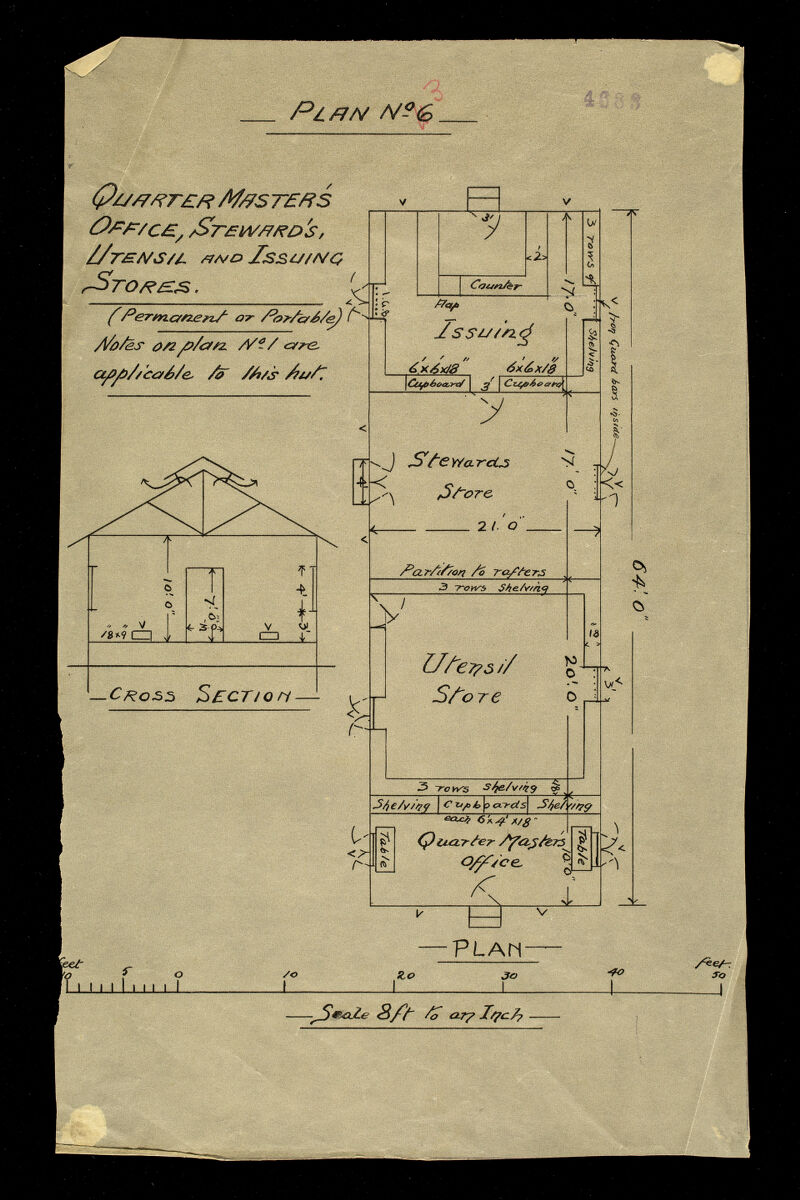 3
4688
PLAN No 6
QUARTER MASTER'S
OFFICE, STEWARD'S,
UTENSIL AND ISSUING
STORES.
(Permanent or Portable)
Notes on plan No 1 are
applicable to this hut.
3'
2'
17'.0"
3 rows of
Shelving
Counter
Flap
Issuing
V Iron Guard bars inside
6'x6'x18"
6'x6'x18"
Cupboard
3'
Cupboard
Stewards
Store
4'
17'.0"
21'.0"
Partition to rafters
3 rows shelving
64'.0"
18"
Utensil
Store
20'.0"
3'
3 rows shelving
18"
Shelving
Cupboards
Shelving
each 6'x4'x18"
Quarter Master's
Office
Table
Table
10'.0"
PLAN
10'.0"
7'.0"
3'.0"
4'
3'
18"x9"
V
V
CROSS SECTION
feet
10
5
0
10
20
30
40
50
feet.
Scale 8ft to an Inch